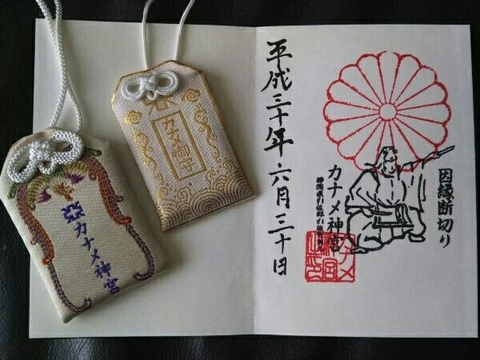 カナメ神宮
カナメ御守
平成三十年六月三十日
因縁断切り
カナメ神宮